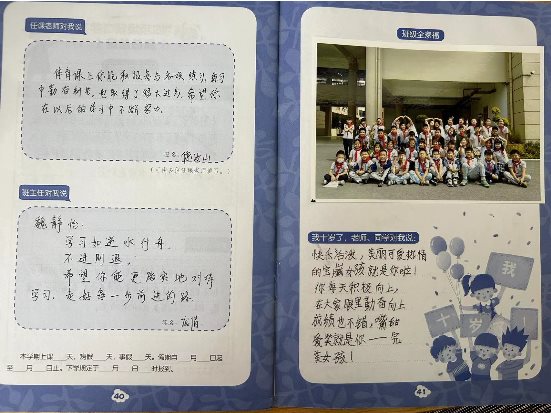 任课老师对我说
体育课上你能积极参与各项练习，学习
中勤奋刻苦，也取得了很大进步，希望你
在以后的学习中不断努力。
签名
班主任对我说
魏静怡
学习如逆水行舟，
不进则退，
希望你能更踏实地对待
学习，走好每一步前进的路
签名
本学期上课 天，病假 天，事假 天。假期自 月 日起
至 月 日止。下学期定于 月 日 时报到。
40
班级全家福
我十岁了，老师、同学对我说：
快乐活泼，美丽可爱热情
的宝藏女孩就是你啦！
你每天积极向上，
在大家眼里勤奋向上
成绩也不错，嘴甜
爱笑就是你——完
美女孩！
我
十
岁
了
41